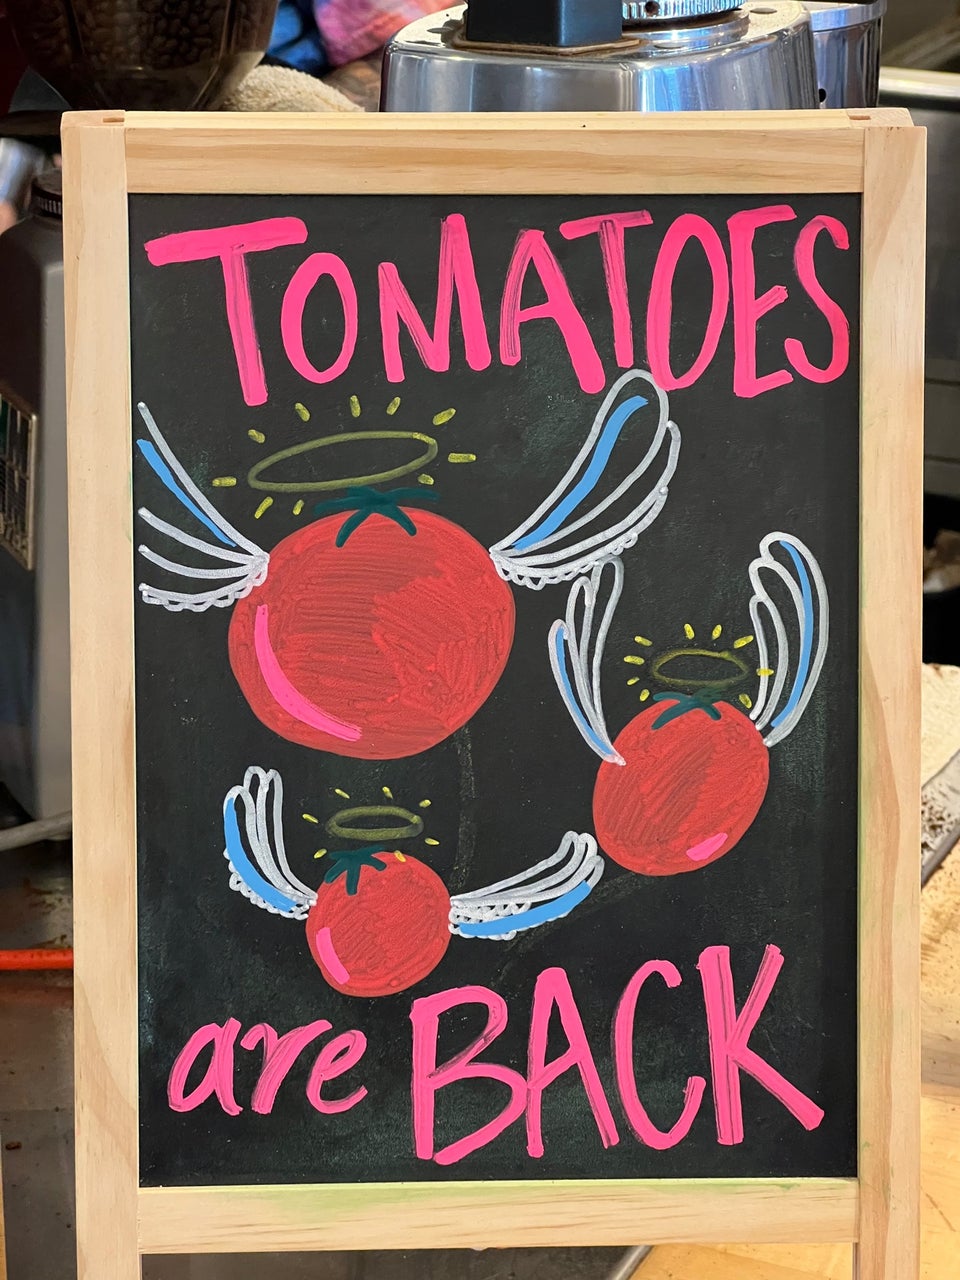 TOMATOES
are BACK